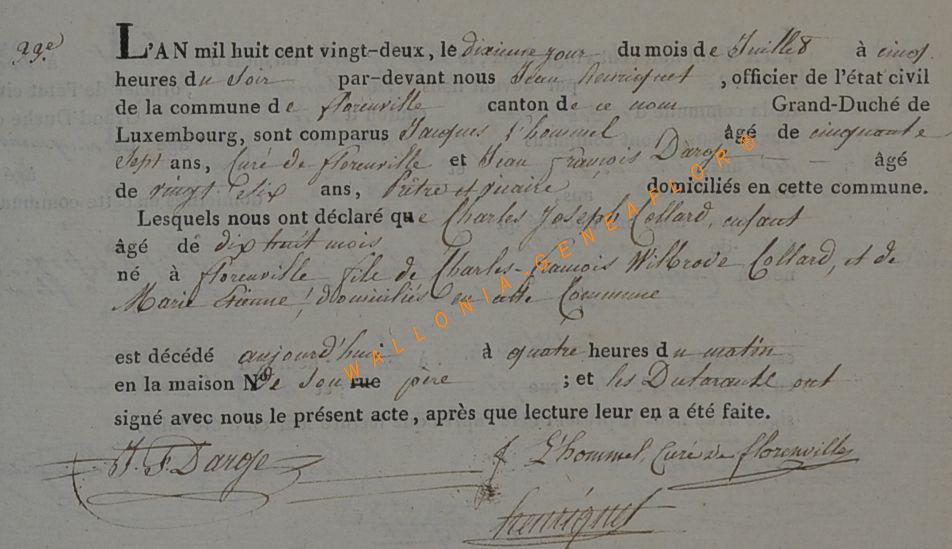 99e
L'AN mil huit cent vingt-deux, le dixieme jour du mois de Juillet à cinq
heures du Soir par-devant nous Jean henriquet, officier de l'état civil
de la commune de florenville canton de ce nom Grand-Duché de
Luxembourg, sont comparus Jacques l'hommel âgé de cinquante
sept ans, Curé de florenville et Jean françois Daroge âgé
de vingt ans, Prêtre et domiciliés en cette commune.
Lesquels nous ont déclaré que Charles Joseph Collard, enfant
âgé de dix huit mois
né à florenville fils de Charles-françois Wilbrode Collard, et de
Marie Etienne, domiciliés en cette Commune
est décédé aujourd'hui à quatre heures du matin
en la maison No de son rue père ; et les Déclarants ont
signé avec nous le présent acte, après que lecture leur en a été faite.
J. F. Daroge
J L'hommel, Curé de florenville
henriquet
WALLONIA-GENEAFLOR©